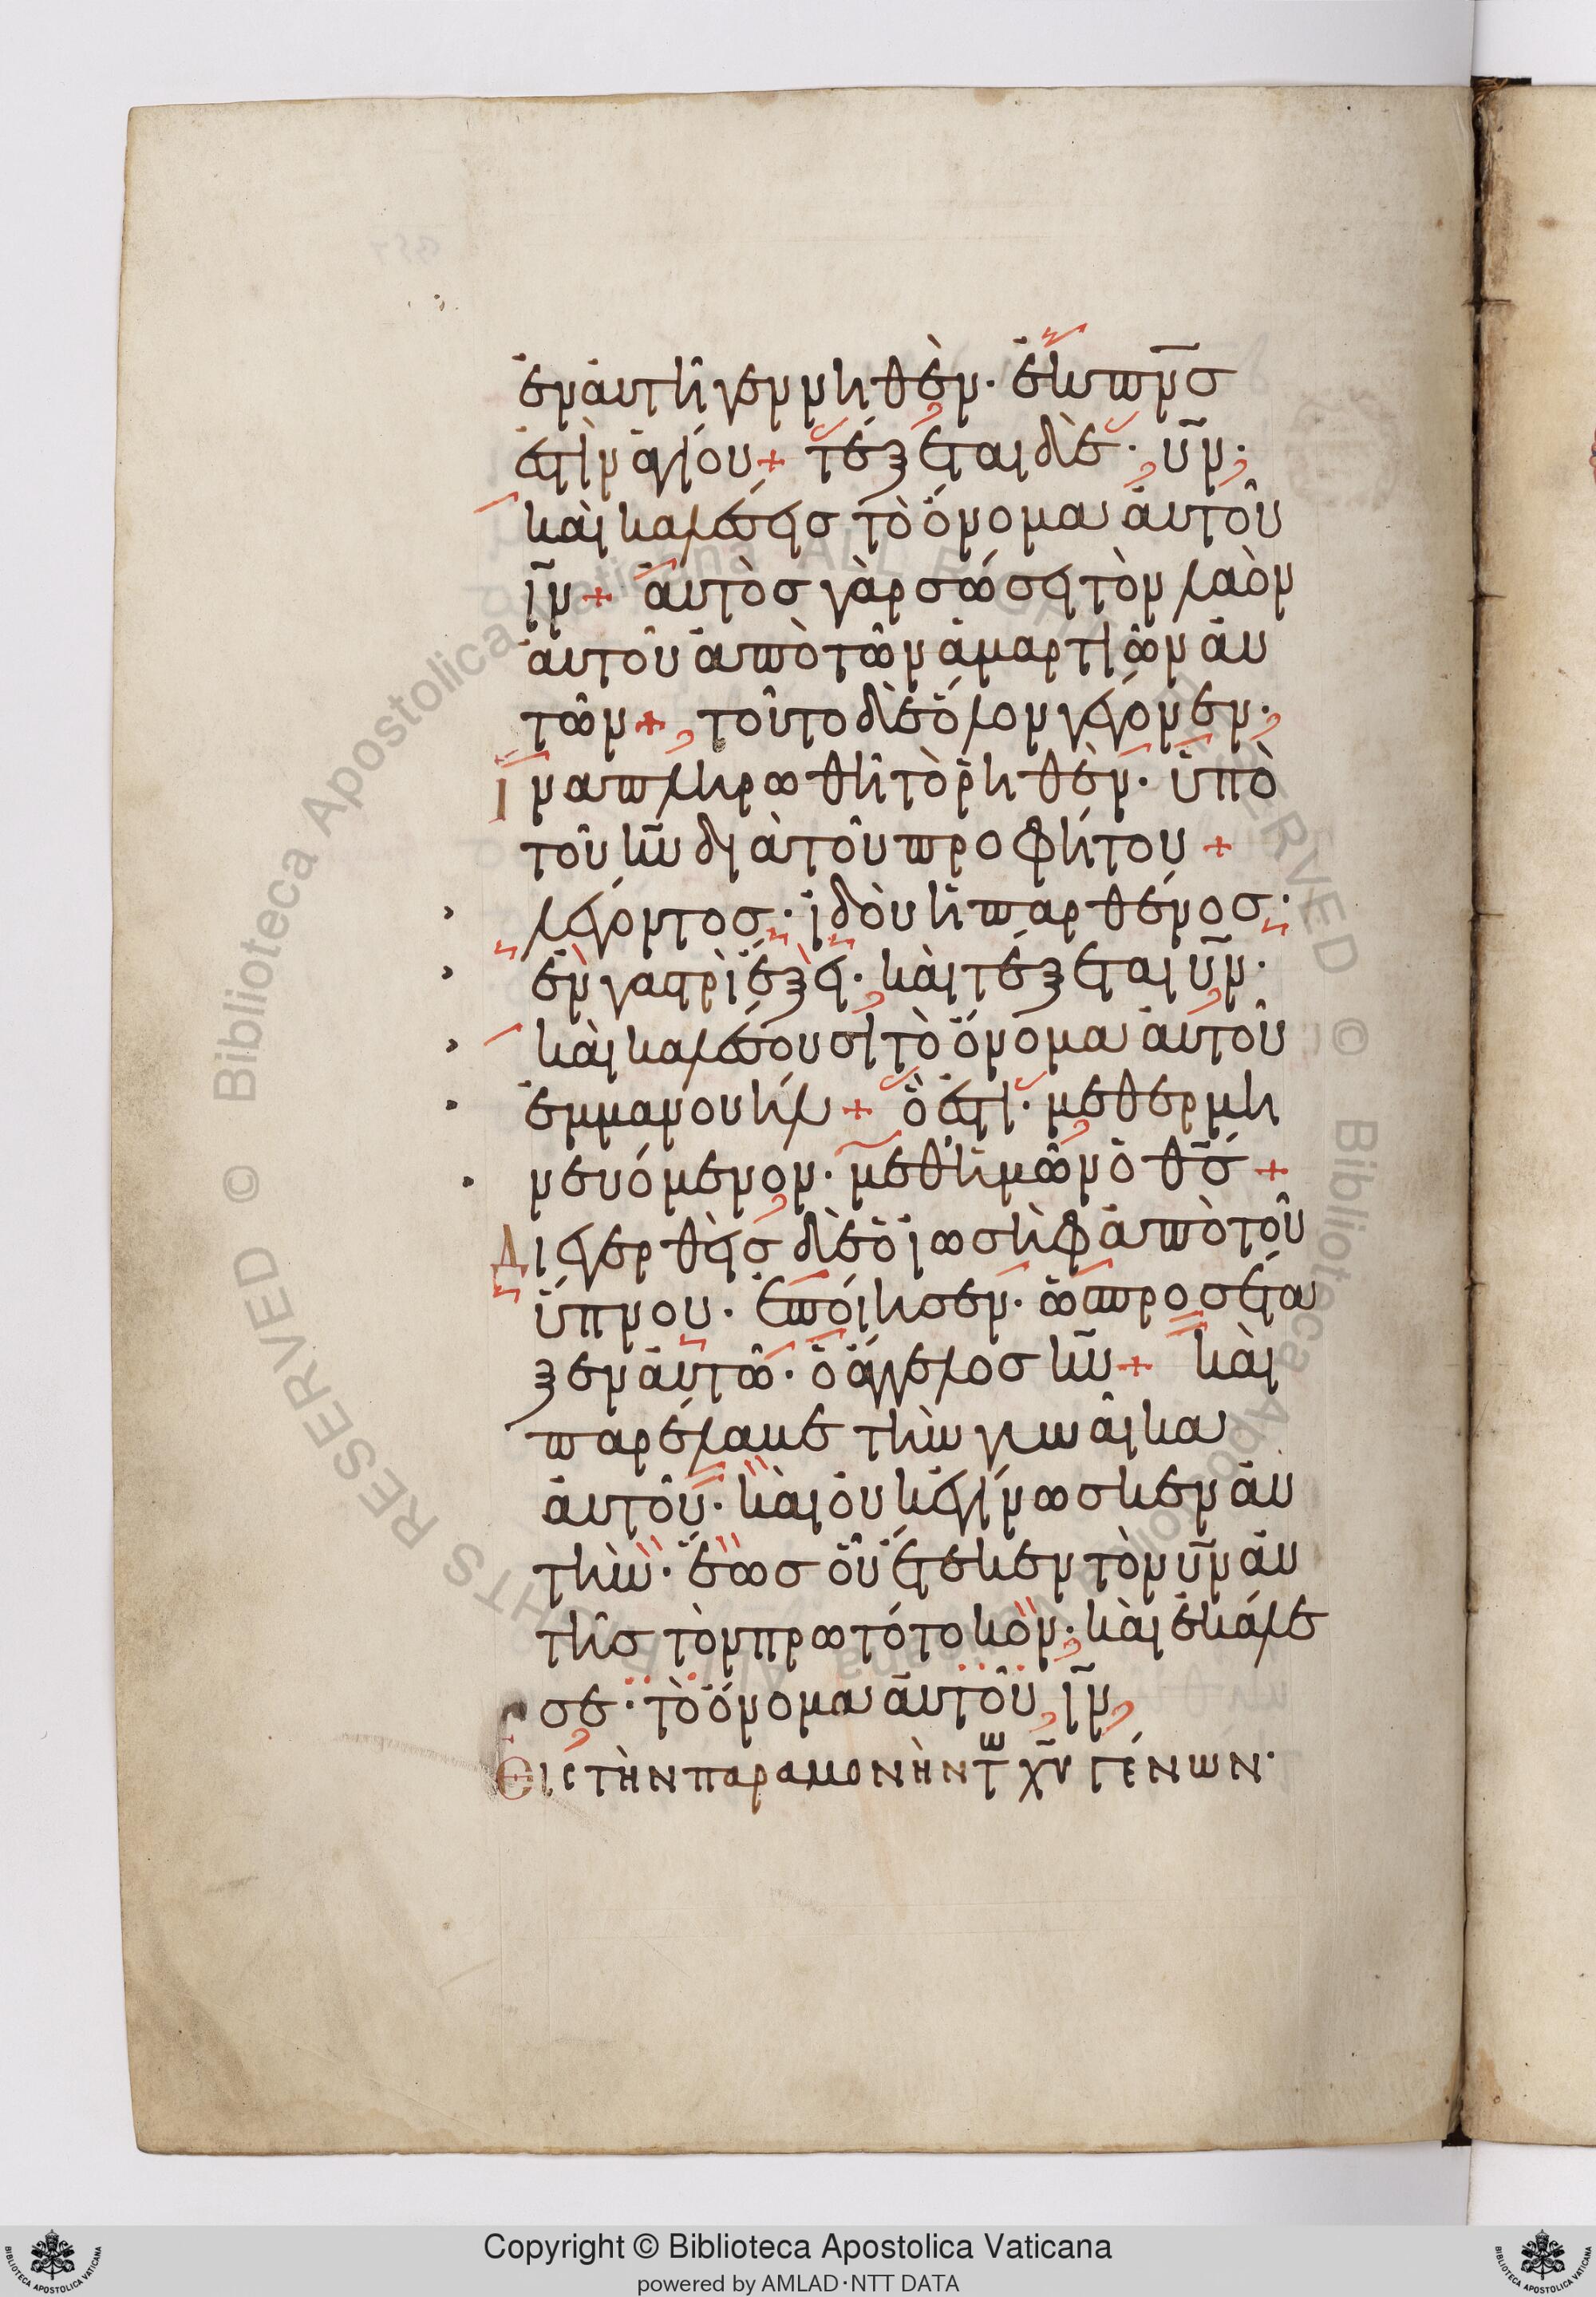 ἐν αὐτῆ γεννηθὲν· ἐκ πν̅σ
ἐστὶν ἁγίου + τέξεται δὲ· υ̅ν·
καὶ καλέσεις τὸ ὄνομα αὐτοῦ
ι̅ν + αὐτὸς γὰρ σώσει τὸν λαὸν
αὐτοῦ ἀπὸ τῶν ἁμαρτιῶν αὐ
τῶν + τοῦτο δὲ ὅλον γέγονεν·
ἵνα πληρωθῆ τὸ ῥηθὲν· ὑπὸ
τοῦ κ̅υ διὰ τοῦ προφήτου +
λέγοντος· ἰδοὺ ἡ παρθένος·
ἐν γαστρὶ ἕξει· καὶ τέξεται υ̅ν·
καὶ καλέσουσι τὸ ὄνομα αὐτοῦ
ἐμμανουήλ + ὅ ἐστι· μεθερμη
νευόμενον· μεθ' ἡμῶν ὁ θ̅σ +
Διεγερθεὶς δὲ ὁ ἰωσὴφ ἀπὸ τοῦ
ὕπνου· ἐποίησεν· ὡς προσέτα
ξεν αὐτῶ· ὁ ἄγγελος κ̅υ + καὶ
παρέλαβε τὴν γυναῖκα
αὐτοῦ· καὶ οὐκ ἐγίνωσκεν αὐ
τὴν· ἕως οὗ ἔτεκεν τὸν υ̅ν αὐ
τῆς τὸν πρωτότοκον· καὶ ἐκάλε
σε· τὸ ὄνομα αὐτοῦ ι̅ν
Εἰς τὴν παραμονὴν τῶ χ̅υ γέννων·
Copyright © Biblioteca Apostolica Vaticana
powered by AMLAD·NTT DATA